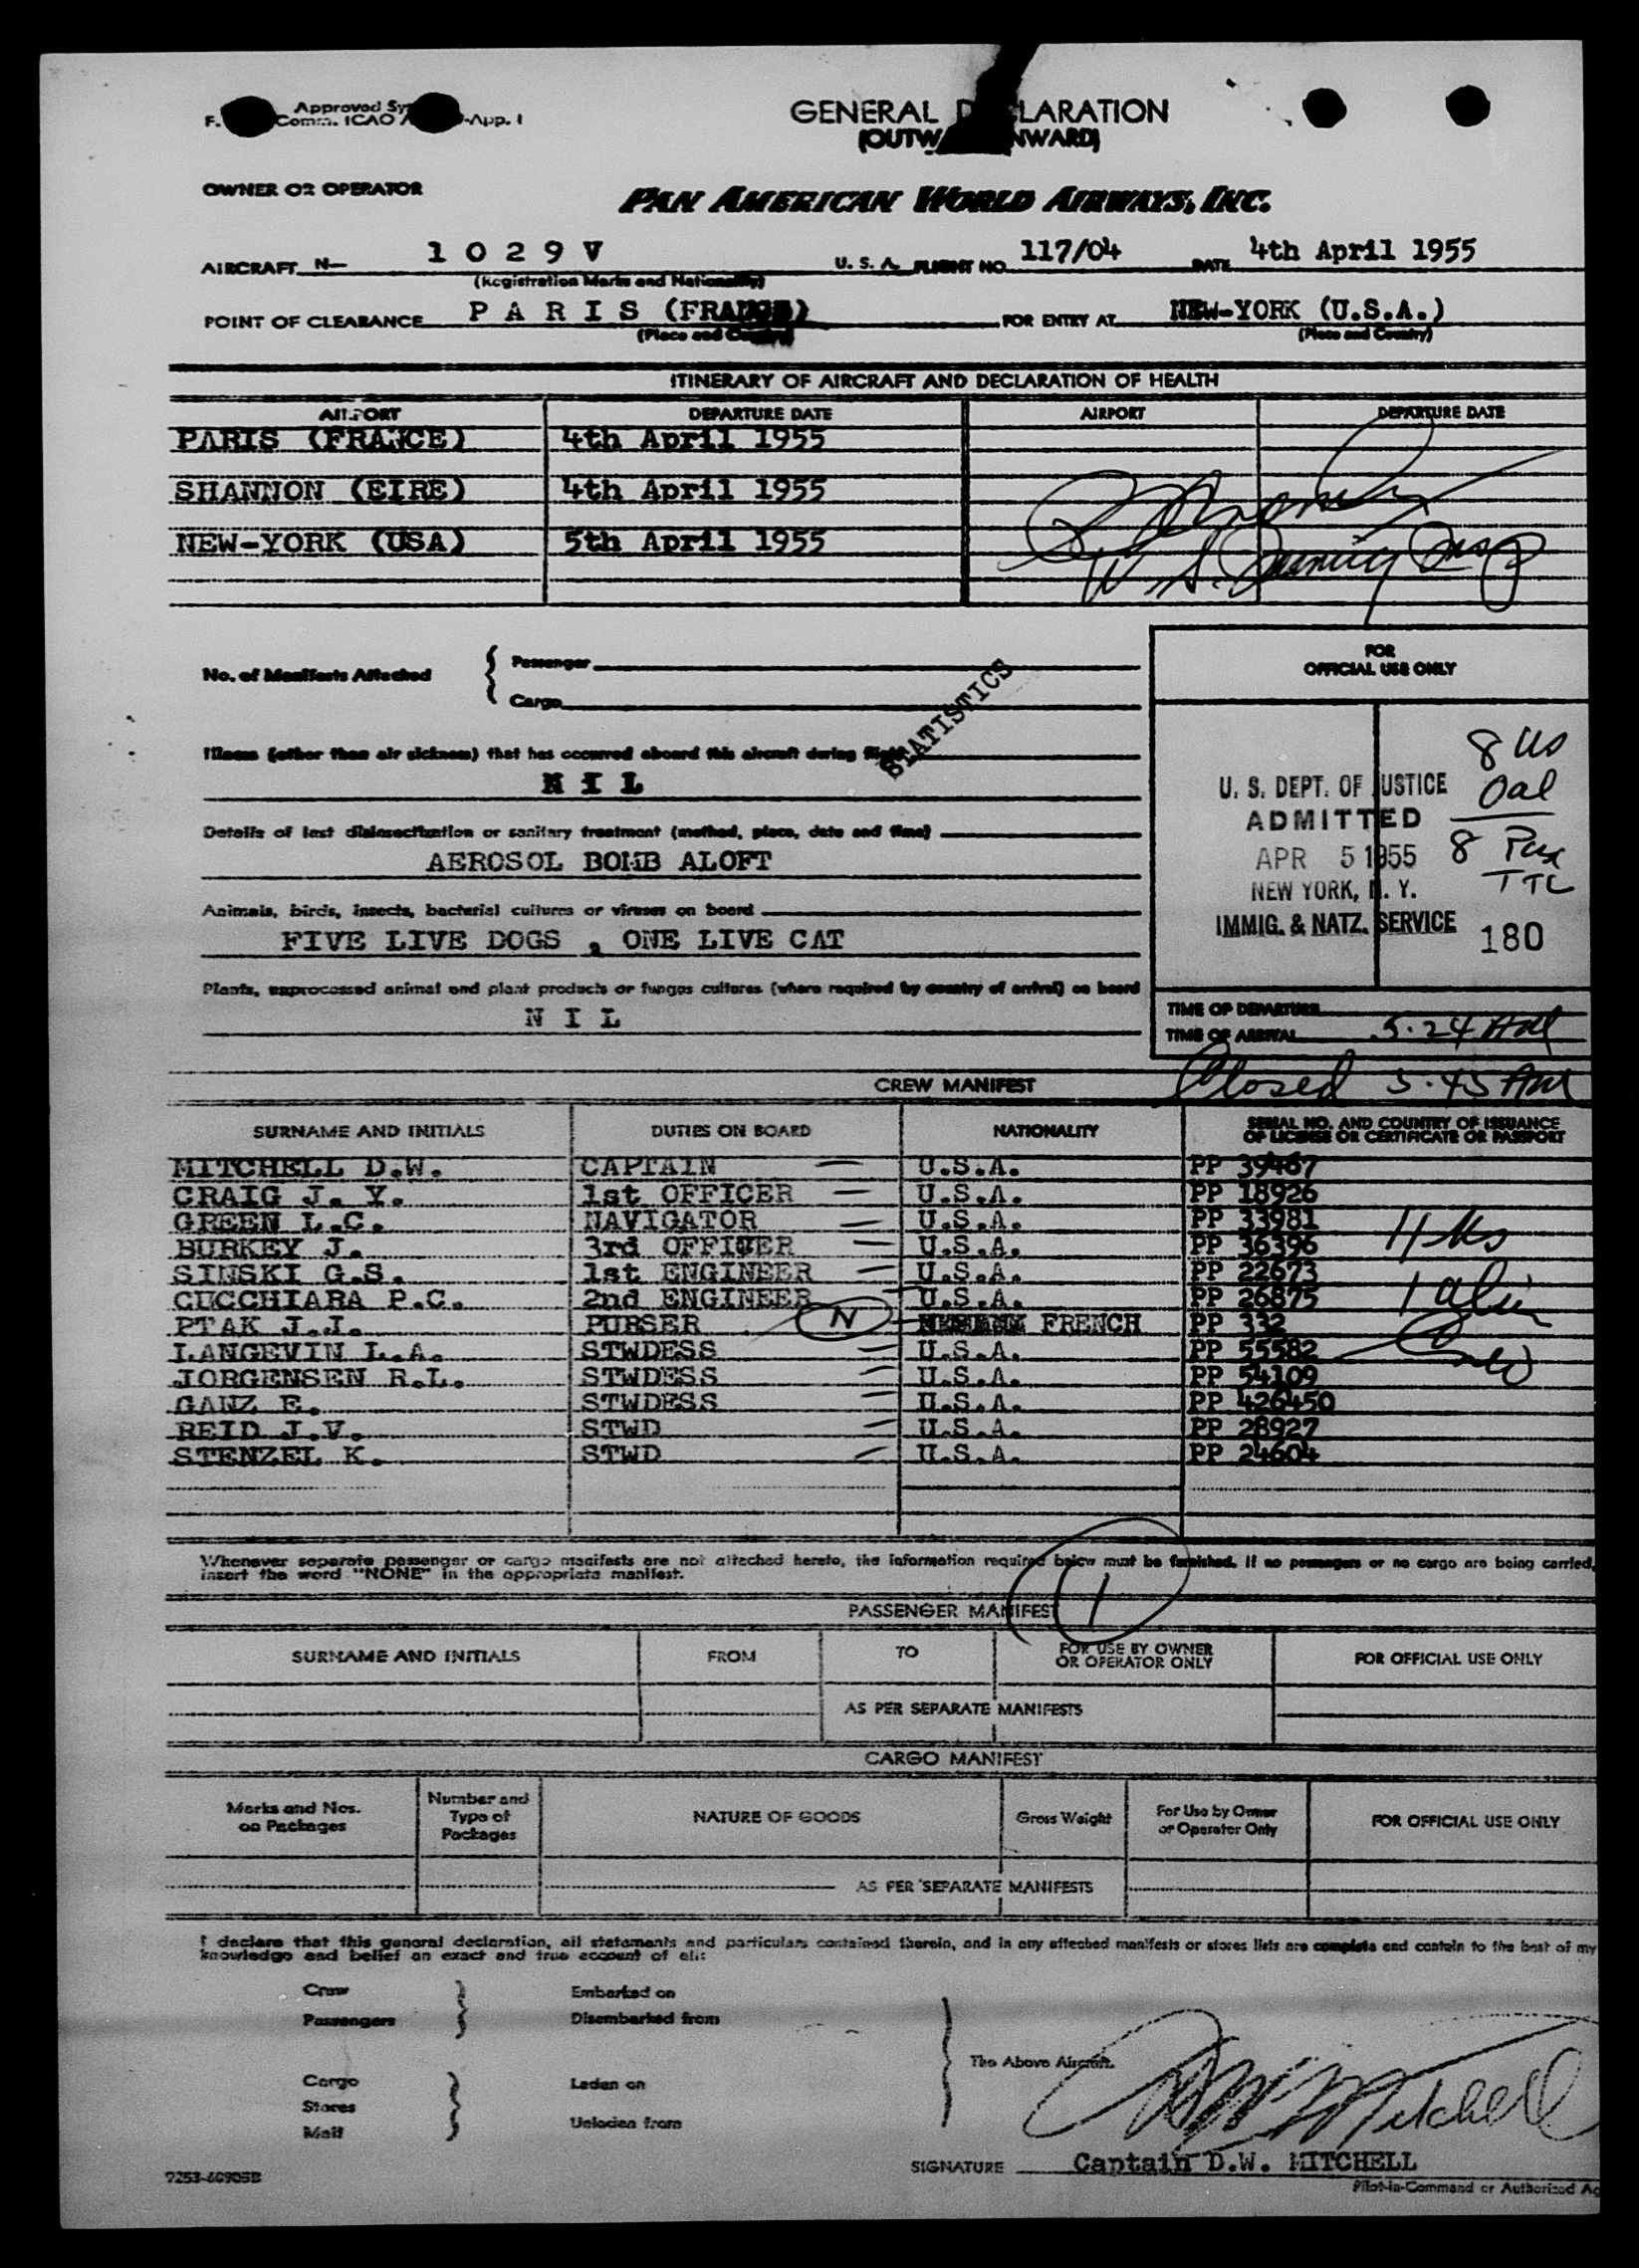 F. Comm. ICAO -App. I
Approved
GENERAL D LARATION
(OUTW NWARD)
OWNER OR OPERATOR
PAN AMERICAN WORLD AIRWAYS, INC.
AIRCRAFT N- 1 0 2 9 V U. S. A. FLIGHT NO. 117/04 DATE 4th April 1955
(Registration Marks and Nationality)
POINT OF CLEARANCE P A R I S (FRANCE) FOR ENTRY AT NEW-YORK (U.S.A.)
(Place and Country) (Place and Country)
ITINERARY OF AIRCRAFT AND DECLARATION OF HEALTH
AIRPORT DEPARTURE DATE AIRPORT DEPARTURE DATE
PARIS (FRANCE) 4th April 1955
SHANNON (EIRE) 4th April 1955
NEW-YORK (USA) 5th April 1955
No. of Manifests Attached
Passenger
Cargo
STATISTICS
FOR
OFFICIAL USE ONLY
Illness (other than air sickness) that has occurred aboard this aircraft during flight
N I L
Details of last disinsectization or sanitary treatment (method, place, date and time)
AEROSOL BOMB ALOFT
Animals, birds, insects, bacterial cultures or viruses on board
FIVE LIVE DOGS , ONE LIVE CAT
Plants, unprocessed animal and plant products or fungus cultures (where required by country of arrival) on board
N I L
8 us
0al
8 Pax
TTL
U. S. DEPT. OF JUSTICE
ADMITTED
APR 5 1955
NEW YORK, N. Y.
IMMIG. & NATZ. SERVICE 180
TIME OF DEPARTURE
TIME OF ARRIVAL 5.24 AM
Closed 5.45 AM
CREW MANIFEST
SURNAME AND INITIALS DUTIES ON BOARD NATIONALITY SERIAL NO. AND COUNTRY OF ISSUANCE
OF LICENSE OR CERTIFICATE OR PASSPORT
MITCHELL D.W. CAPTAIN — U.S.A. PP 39467
CRAIG J. Y. 1st OFFICER — U.S.A. PP 18926
GREEN L.C. NAVIGATOR — U.S.A. PP 33981
BURKEY J. 3rd OFFICER — U.S.A. PP 36396 11 us
SINSKI G.S. 1st ENGINEER — U.S.A. PP 22673
CUCCHIARA P.C. 2nd ENGINEER U.S.A. PP 26875 1 alien
PTAK J.J. PURSER N FRENCH PP 332
LANGEVIN L.A. STWDESS — U.S.A. PP 55582
JORGENSEN R.L. STWDESS — U.S.A. PP 54109
GANZ E. STWDESS — U.S.A. PP 426450
REID J.V. STWD — U.S.A. PP 28927
STENZEL K. STWD — U.S.A. PP 24604
Whenever separate passenger or cargo manifests are not attached hereto, the information required below must be furnished. If no passengers or no cargo are being carried,
insert the word "NONE" in the appropriate manifest.
1
PASSENGER MANIFEST
SURNAME AND INITIALS FROM TO FOR USE BY OWNER
OR OPERATOR ONLY FOR OFFICIAL USE ONLY
AS PER SEPARATE MANIFESTS
CARGO MANIFEST
Marks and Nos.
on Packages Number and
Type of
Packages NATURE OF GOODS Gross Weight For Use by Owner
or Operator Only FOR OFFICIAL USE ONLY
AS PER SEPARATE MANIFESTS
I declare that this general declaration, all statements and particulars contained therein, and in any attached manifests or stores lists are complete and contain to the best of my
knowledge and belief an exact and true account of all:
Crew Embarked on
Passengers Disembarked from
The Above Aircraft.
Cargo Laden on
Stores
Mail Unladen from
D.W. Mitchell
SIGNATURE Captain D.W. MITCHELL
Pilot-in-Command or Authorized Ag
9253-60905B